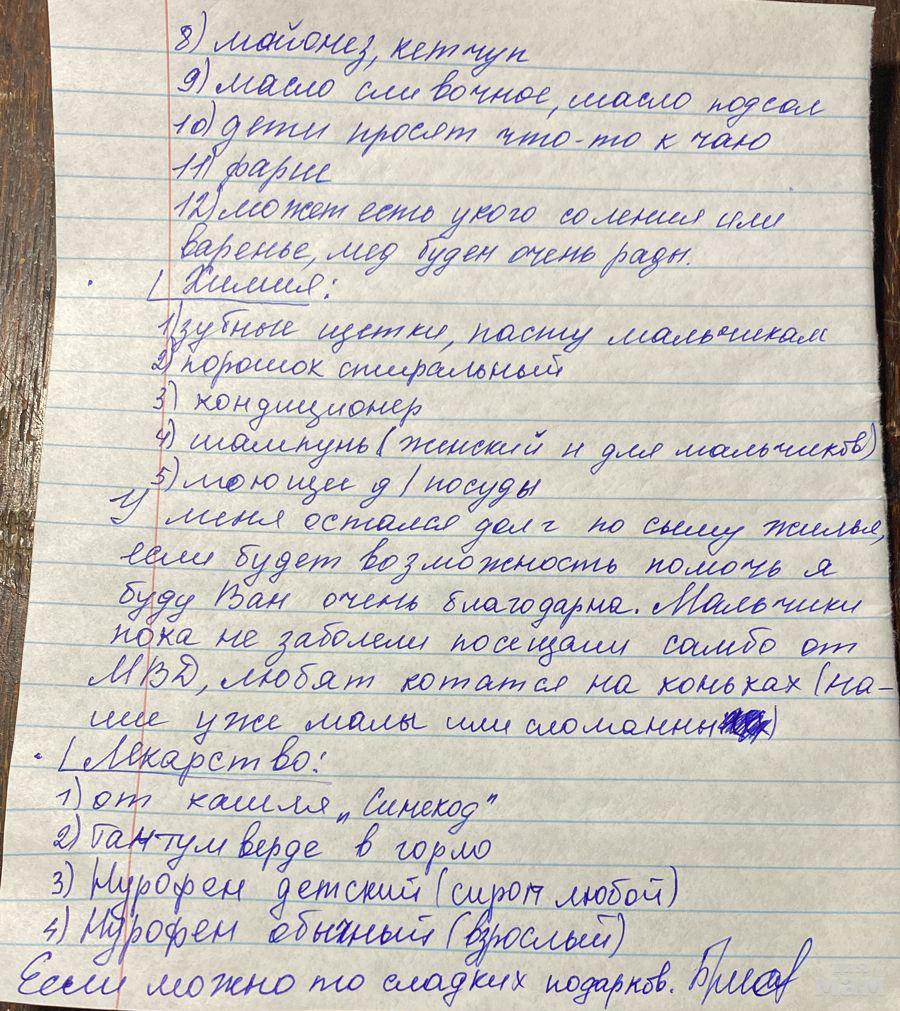 8) майонез, кетчуп
9) масло сливочное, масло подсол
10) дети просят что-то к чаю
11) фарш
12) может есть у кого соления или
варенье, мед будем очень рады.
Химия:
1) зубные щетки, пасту мальчикам
2) порошок стиральный
3) кондиционер
4) шампунь (женский и для мальчиков)
5) моющее д/посуды
У меня остался долг по сьему жилья,
если будет возможность помочь я
буду Вам очень благодарна. Мальчики
пока не заболели посещали самбо от
МВД, любят котатся на коньках (на-
ши уже малы или сломанны)
Лекарство:
1) от кашля „Синекод"
2) Тантум верде в горло
3) Нурофен детский (сироп любой)
4) Нурофен обычный (взрослый)
Если можно то сладких подарков.